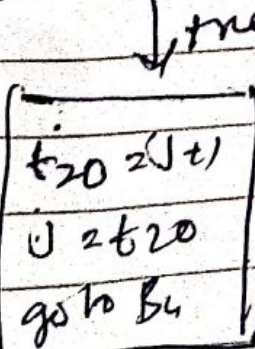 true
t20 = j+1
j = t20
go to B4